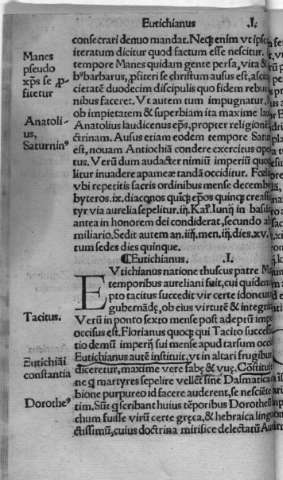 Eutichianus .I.
consecrari denuo mandat. Neq; enim vt ipse
iteratum dicitur quod factum esse nescitur.
Manes
pseudo
xp̄s se ꝓ-
fitetur
tempore Manes quidam gente persa, vita &
bꝰ barbarus, ꝓfiteri se christum ausus est, ascita
cietate duodecim discipulis quo fidem rebus
nibus faceret. Vt autem tum impugnatur,
ob impietatem & superbiam ita maxime lau
Anatoli-
us,
Saturninꝰ
Anatolius laudicenus ep̄s, propter religionē
ctrinam. Ausus etiam eodem tempore Satur
est, nouam Antiochiā condere exercitus opē
tus. Verū dum audacter nimiū imperiū quod
litur inuadere apameæ tandā occiditur. Fœl
vbi repetitis sacris ordinibus mense decemb
byteros .ix. diacōos quīq; ep̄os quinq; creass
tyr via aurelia sepelitur .iij. Kal. Iunij in basili
antea in honorem dei condiderat, secundo ab
miliario. Sedit autem an. iiij. men. iij. dies .xv.
tum sedes dies quinque.
¶Eutichianus. .I.
EVtichianus natione thuscus patre M
temporibus aureliani fuit, cui quidem
pto tacitus succedit vir certe idoneus
gubernādę, ob eius virtutē & integri
Tacitus.
Verū in ponto sexto mense post adeptū imp
occisus est. Florianus quoq; qui Tacito succes
tio demū imperij sui mense apud tarsum occi
Eutichiāi
constantia
Eutichianus autē instituit, vt in altari frugibus
diceretur, maxime vere fabę & vuę. Cōstituit
ne q̄ martyres sepelire vellēt sine Dalmatica
bione purpureo id facere auderent, se nesciēte
Dorotheꝰ
tim. Sūt q̄ scribant huius tēporibus Dorotheū
chum fuisse virū certe gręca, & hebraica lingua
ctissimū, cuius doctrina mirifice delectatū Au